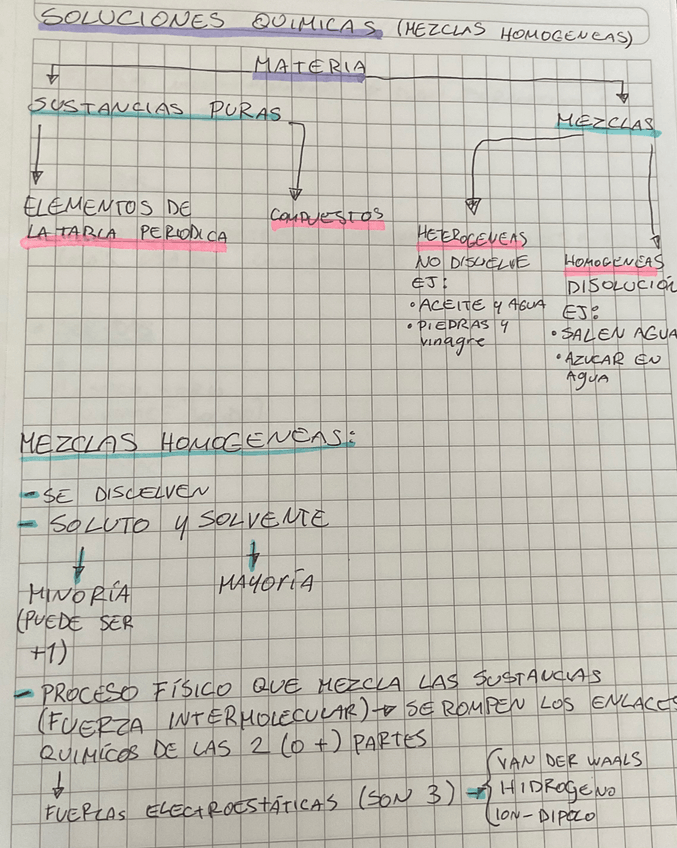 SOLUCIONES QUIMICAS (MEZCLAS HOMOGENEAS)
MATERIA
SUSTANCIAS PURAS
MEZCLAS
ELEMENTOS DE
LA TABLA PERIODICA
COMPUESTOS
HETEROGENEAS
NO DISUELVE
EJ:
• ACEITE Y AGUA
• PIEDRAS Y
vinagre
HOMOGENEAS
DISOLUCIÓN
EJ:
• SAL EN AGUA
• AZUCAR EN
AGUA
MEZCLAS HOMOGENEAS:
- SE DISCELVEN
- SOLUTO Y SOLVENTE
MINORÍA
(PUEDE SER
+1)
MAYORÍA
- PROCESO FÍSICO QUE MEZCLA LAS SUSTANCIAS
(FUERZA INTERMOLECULAR) → SE ROMPEN LOS ENLACES
QUIMICOS DE LAS 2 (O +) PARTES
FUERZAS ELECTROESTÁTICAS (SON 3) →
VAN DER WAALS
HIDROGENO
ION-DIPOLO